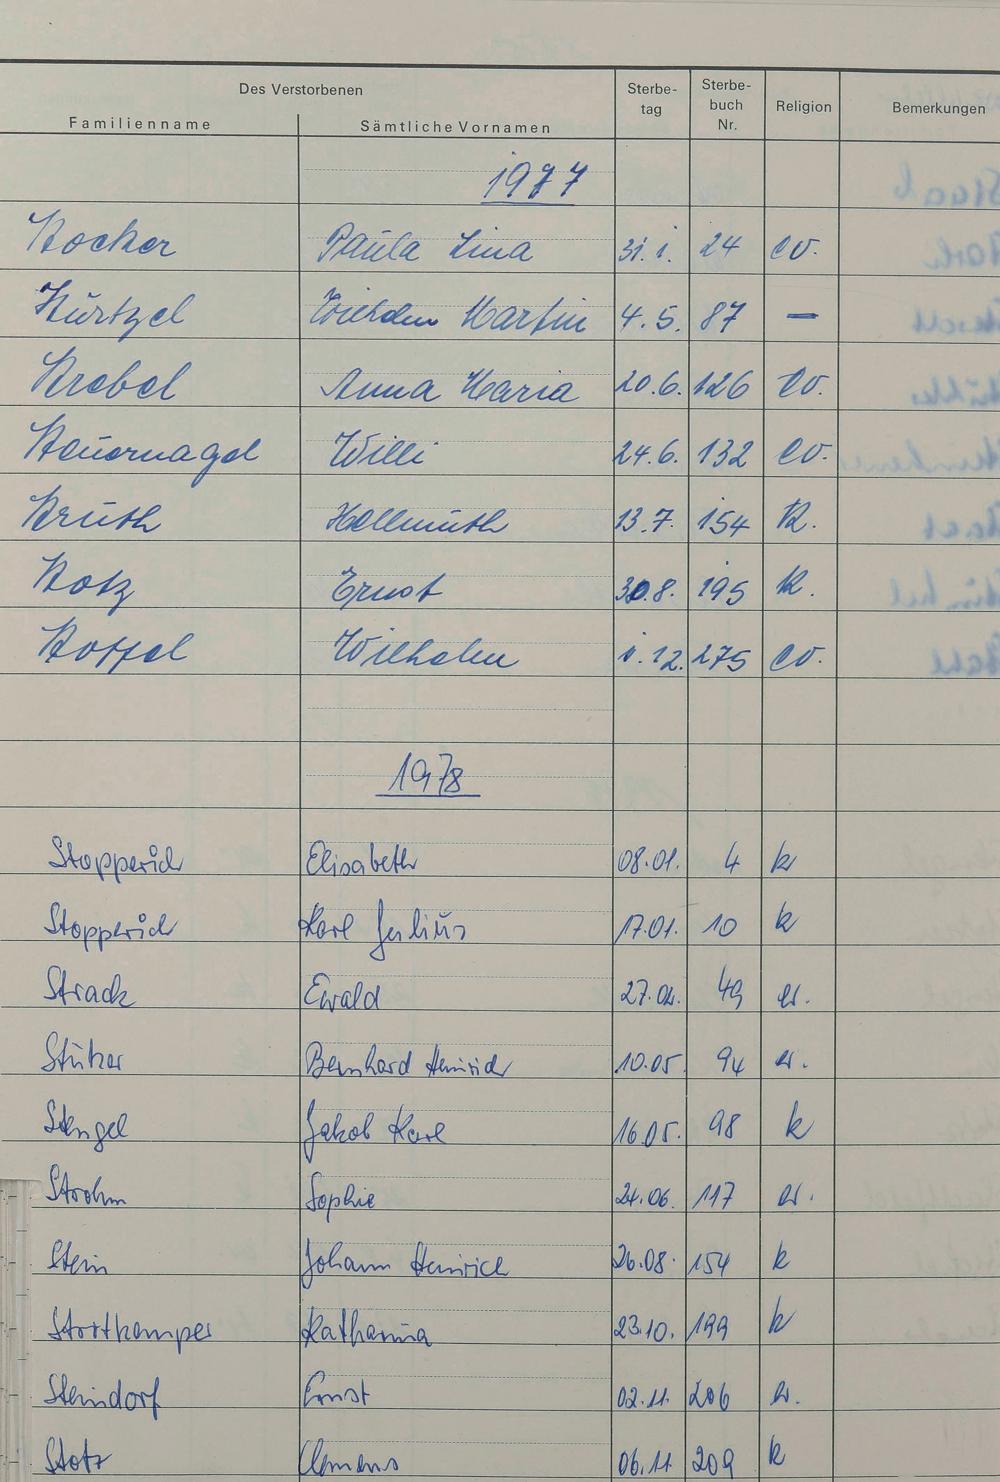 Des Verstorbenen
Familienname
Sämtliche Vornamen
Sterbe-
tag
Sterbe-
buch
Nr.
Religion
Bemerkungen
1977
Stocker Paula Lina 31.1. 24 ev.
Stürtzel Wilhelm Martin 4.5. 87 —
Strobel Anna Maria 20.6. 126 ev.
Steuernagel Willi 24.6. 132 ev.
Struth Hellmuth 13.7. 154 k.
Stotz Ernst 30.8. 195 k.
Stoffel Wilhelm 1.12. 275 ev.
1978
Stopperich Elisabeth 08.01. 4 k
Stopperich Karl Julius 17.01. 10 k
Strack Ewald 27.02. 49 ev.
Stüker Bernhard Heinrich 10.05. 94 ev.
Stengel Jakob Karl 16.05. 98 k
Strohm Sophie 24.06. 117 ev.
Stein Johann Heinrich 26.08. 154 k
Stortkemper Katharina 23.10. 199 k
Steindorf Ernst 02.11. 206 ev.
Stotz Clemens 06.11 209 k